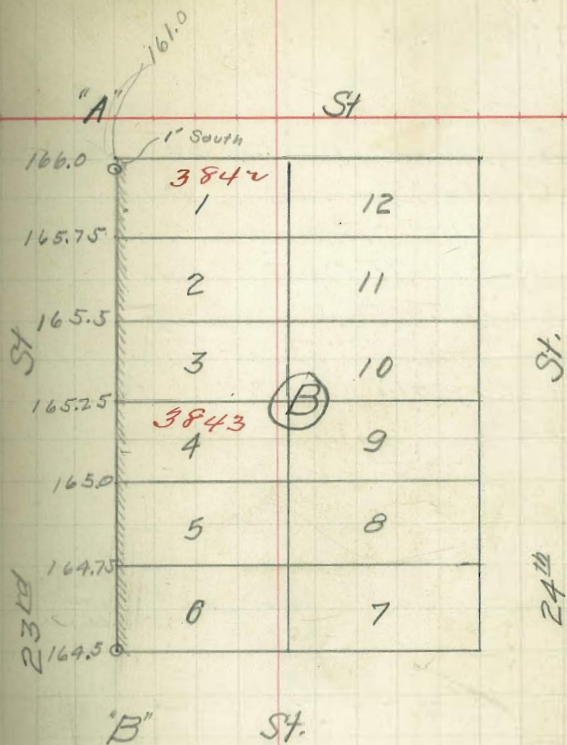 161.0
"A" St
1' South
166.0
3842
1 12
165.75
2 11
165.5
St
3 10
St.
165.25
B
3843
4 9
165.0
5 8
164.75
23rd
6 7
24th
164.5
"B" St.